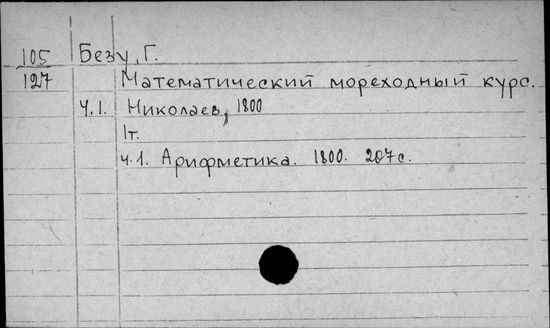 105 Безу, Г.
127 Математический мореходный курс.
Ч.1. Николаев, 1800
1т.
ч.1. Арифметика. 1800. 207 с.